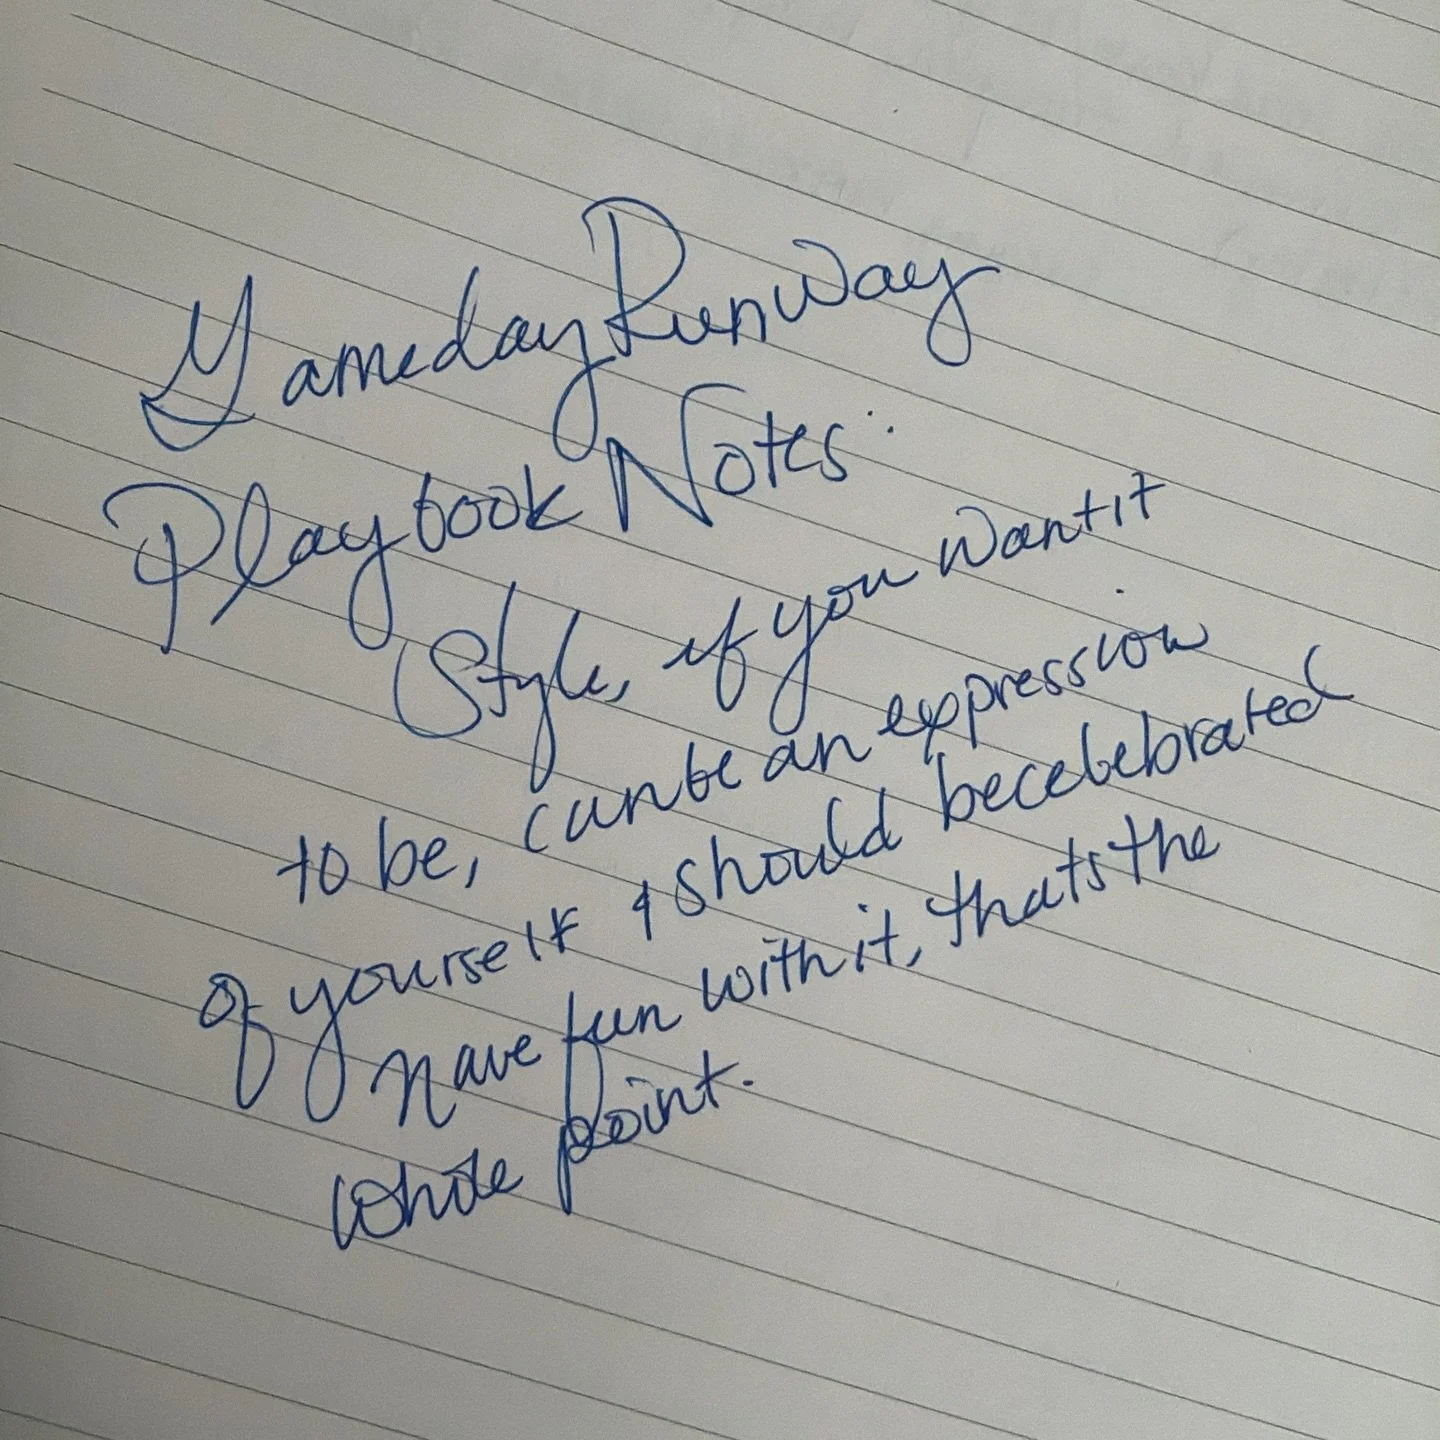 Gameday Runway
Playbook Notes:
Style, if you want it
to be, can be an expression
of yourself & should be celebrated
Have fun with it, thats the
whole point.